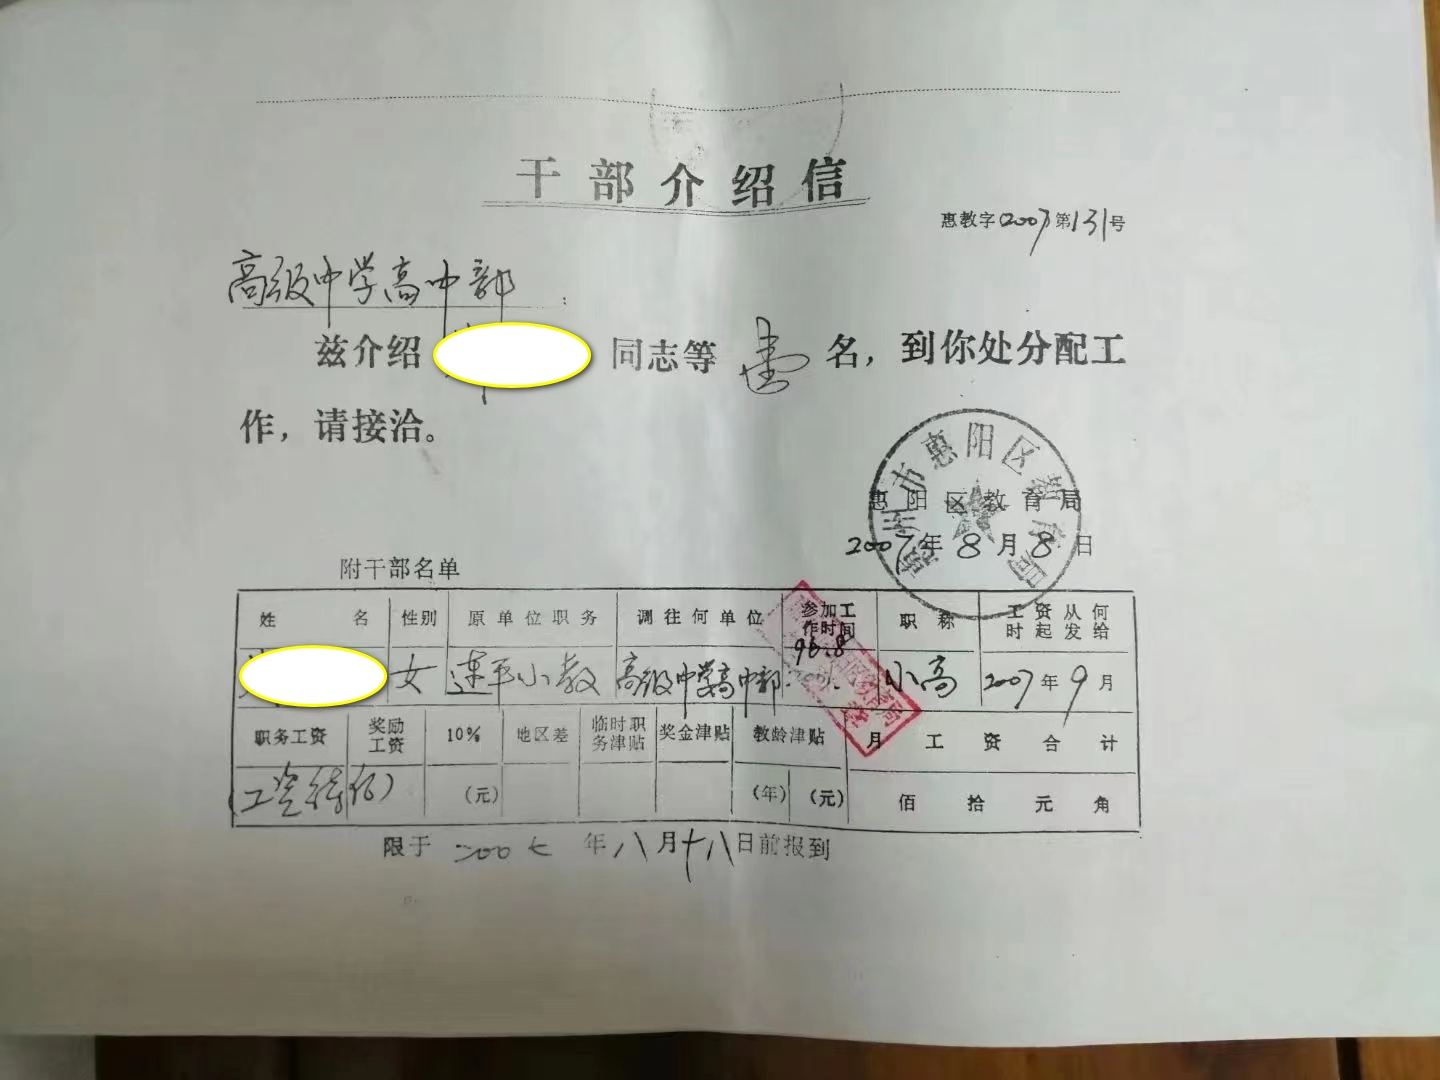 干部介绍信
惠教字(2007)第131号
高级中学高中部：
兹介绍 同志等 壹 名，到你处分配工
作，请接洽。
惠州市惠阳区教育局
惠阳区教育局
2007年8月8日
附干部名单
姓名 性别 原单位职务 调往何单位 参加工作时间 职称 工资从何时起发给
女 连平小教 高级中学高中部 96.8 小高 2007年9月
职务工资 奖励工资 10% 地区差 临时职务津贴 奖金津贴 教龄津贴 月工资合计
(元) (年) (元) 佰 拾 元 角
限于 二00七 年 八 月 十八 日前报到